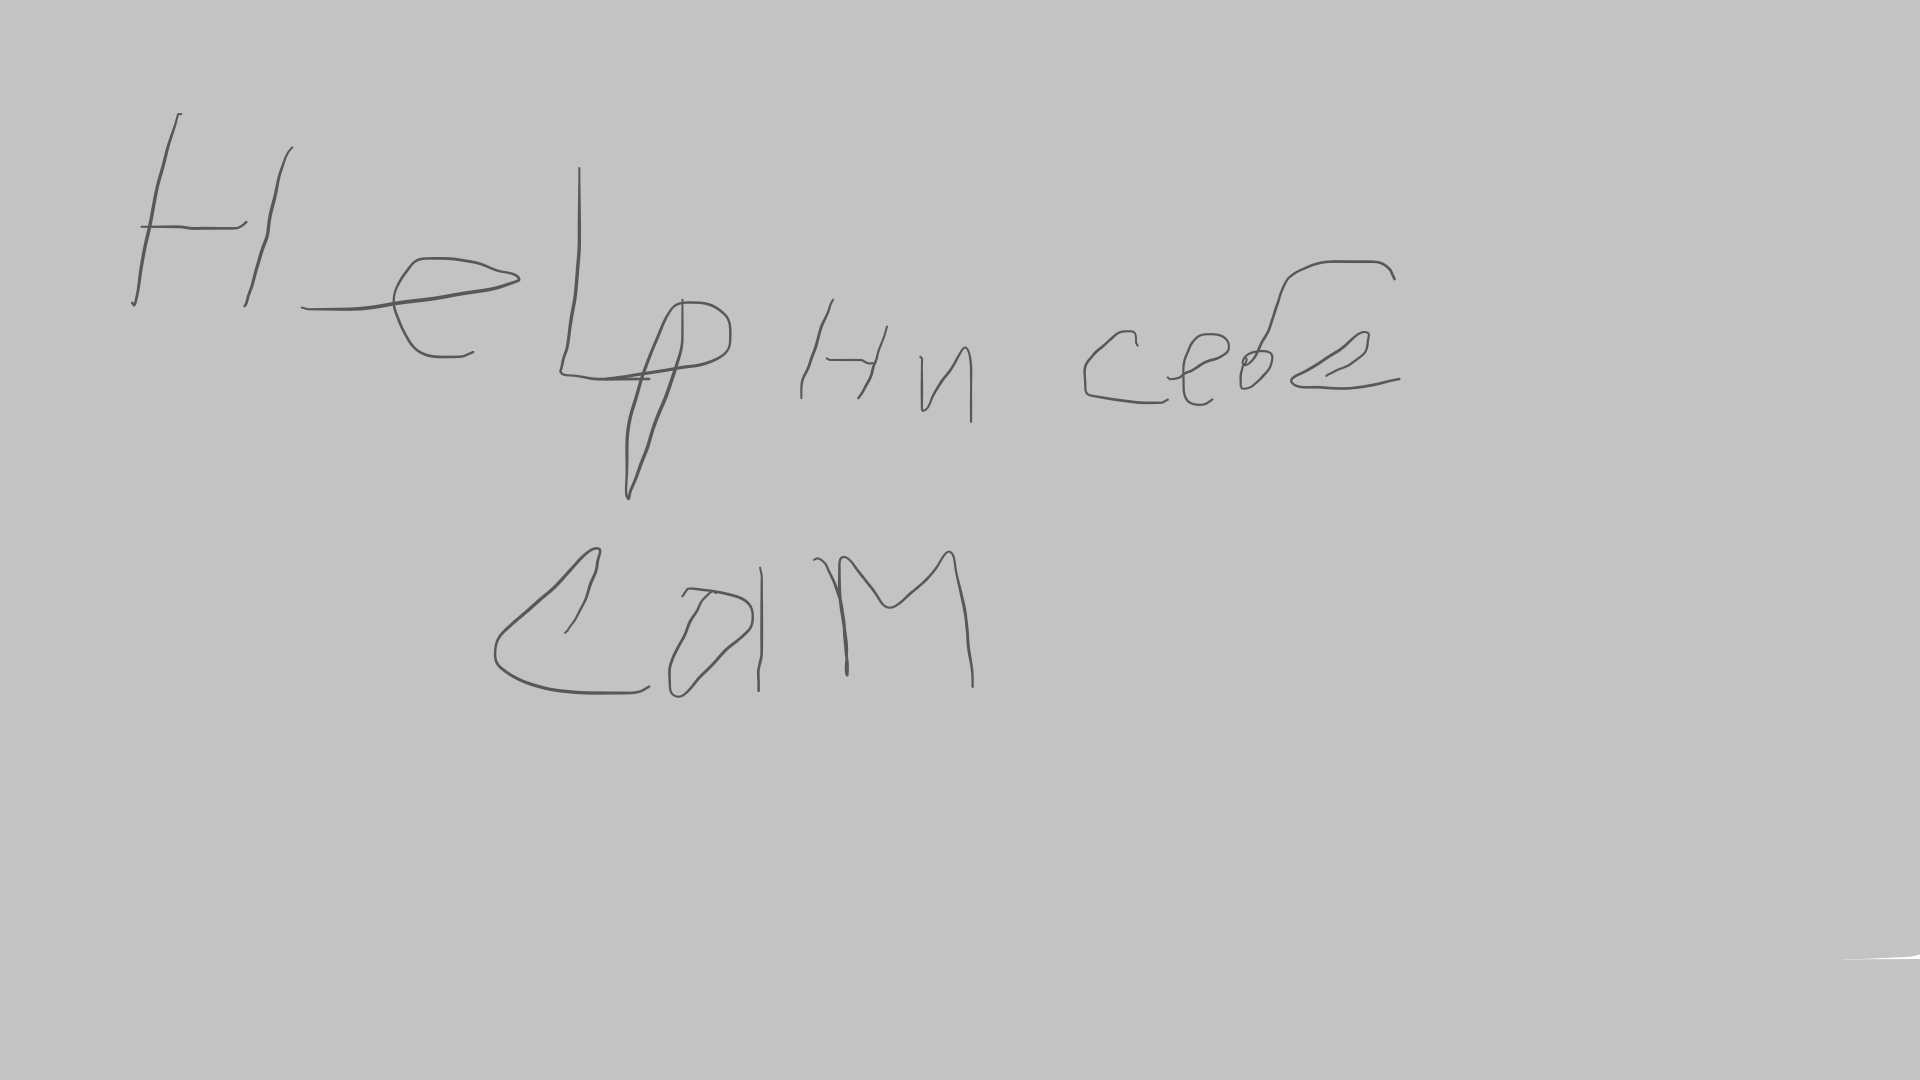 Help ни себе
сам